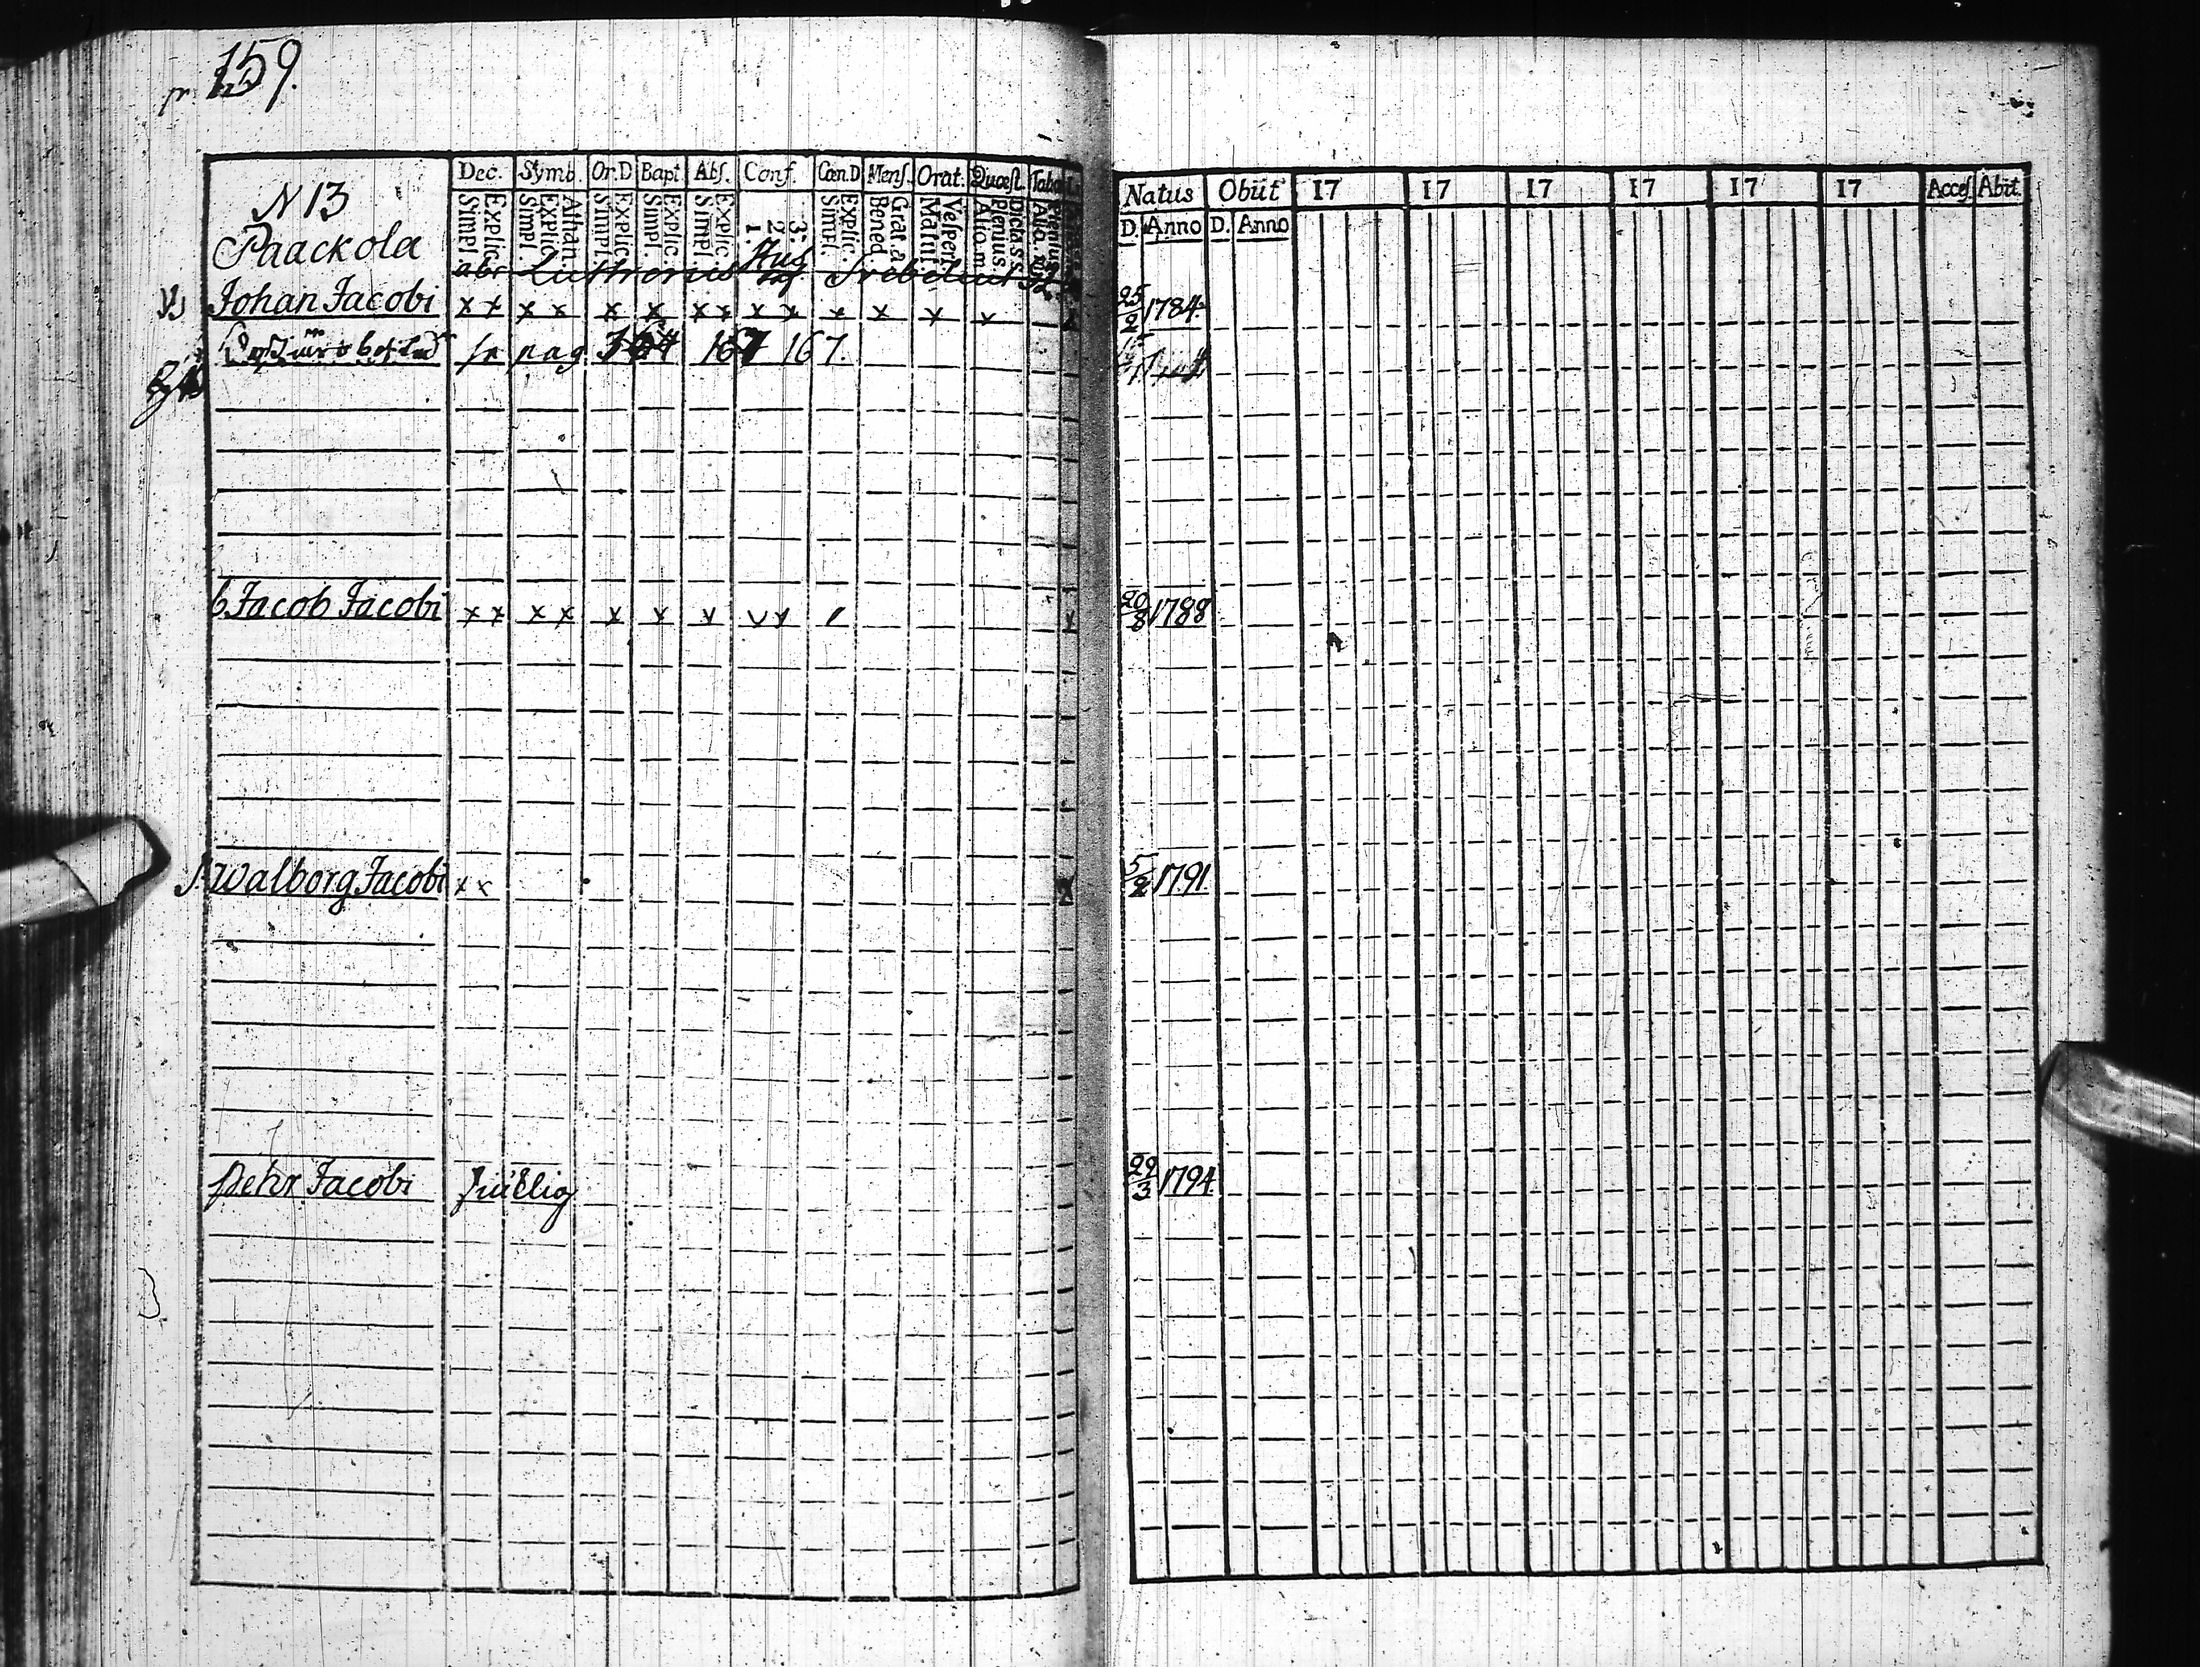 159.
Dec. Symb. Or.D Bapt. Abs. Conf. Cœn.D Mens. Orat. Quœst. Taba
Natus Obiit 17 17 17 17 17 17 Acces. Abit.
D. Anno D. Anno
N 13
Explic. Simpl. Athan. Explic. Simpl. Explic. Simpl. Explic. Simpl. Explic. Simpl. 3. 2. 1. Explic. Simpl. Grat. a Bened. Vespert. Matut. Dicta s.s. Plenius. Alio. m.
Paackola
Johan Jacobi x x x x x x x x x x x x x x 25/2 1784
pag. 164 167 167.
b Jacob Jacobi x x x x x x x 20/8 1788
Walborg Jacobi x x 5/2 1791.
Pehr Jacobi 29/3 1794